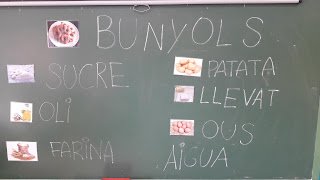 BUNYOLS
SUCRE
OLI
FARINA
PATATA
LLEVAT
OUS
AIGUA